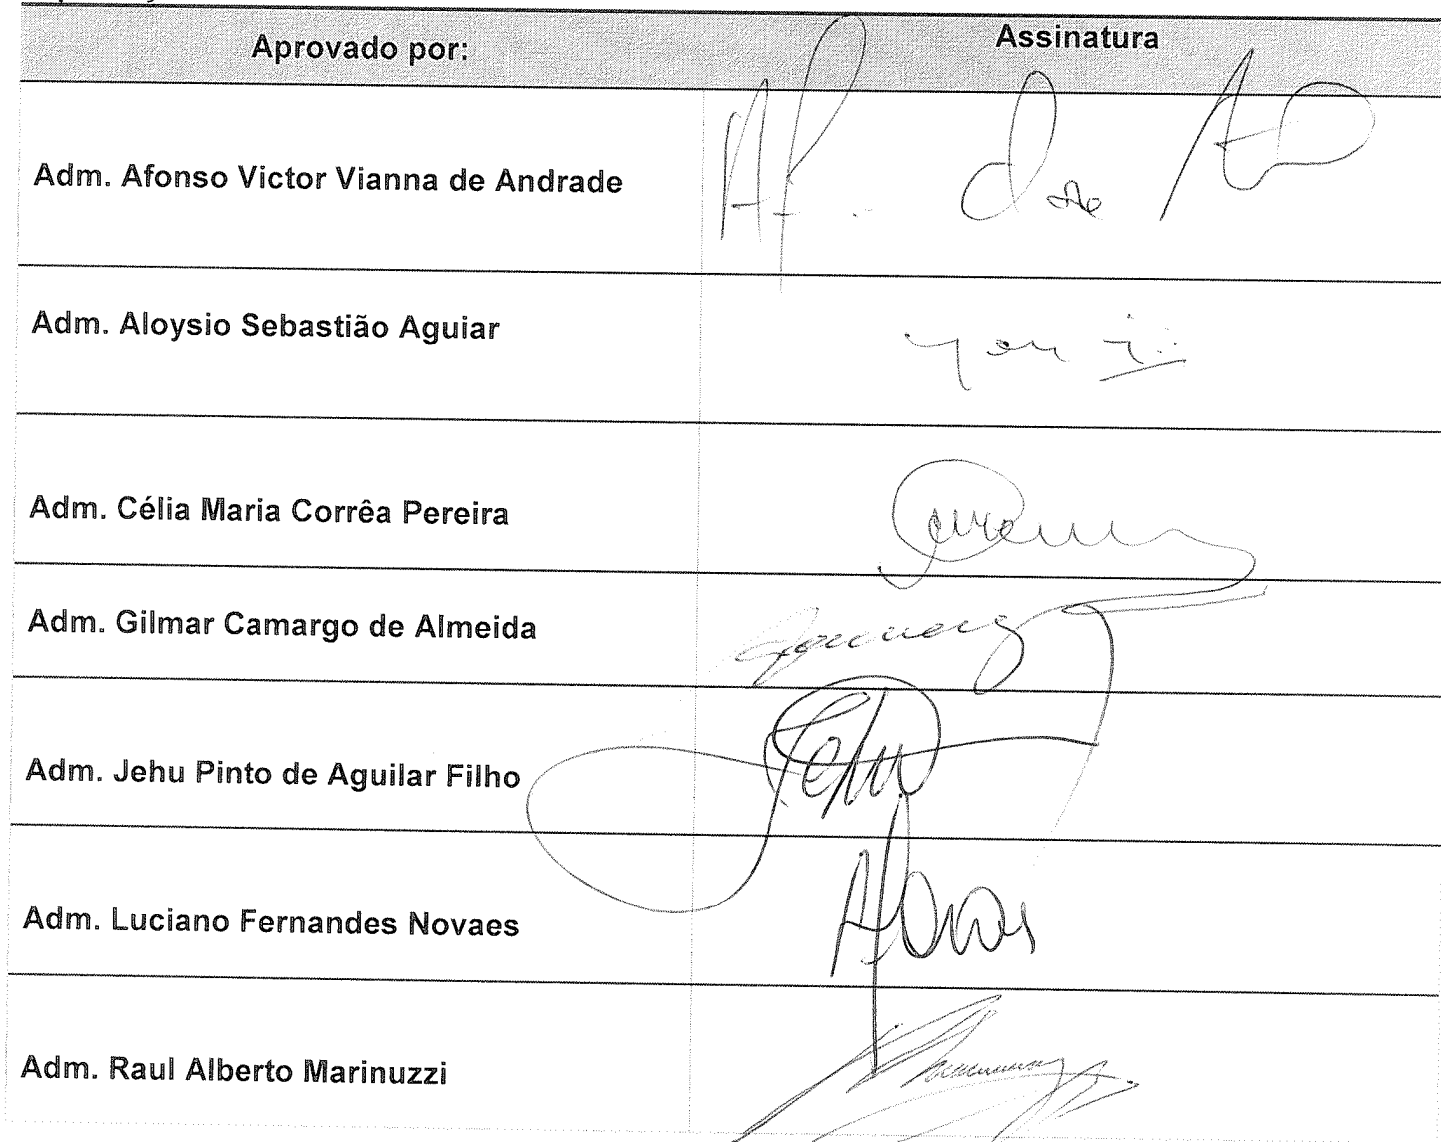 Aprovado por: Assinatura
Adm. Afonso Victor Vianna de Andrade
Adm. Aloysio Sebastião Aguiar
Adm. Célia Maria Corrêa Pereira
Adm. Gilmar Camargo de Almeida
Adm. Jehu Pinto de Aguilar Filho Jehu
Adm. Luciano Fernandes Novaes
Adm. Raul Alberto Marinuzzi